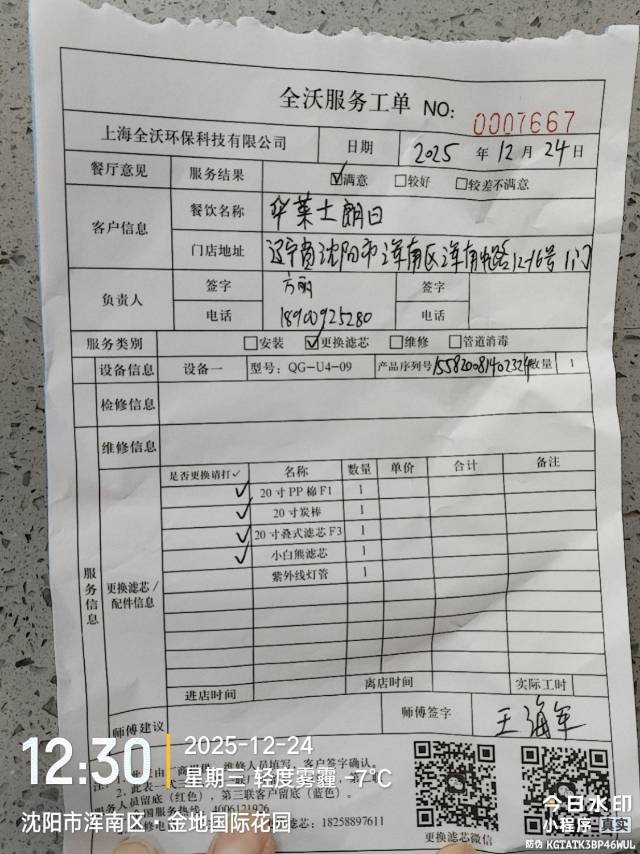 全沃服务工单 NO: 0007667
上海全沃环保科技有限公司 日期 2025 年 12 月 24 日
餐厅意见 服务结果 ☑满意 □较好 □较差不满意
客户信息 餐饮名称 华莱士朗日
门店地址 辽宁省沈阳市浑南区浑南中路12-16号1门
负责人 签字 方丽 签字
电话 18900925280 电话
服务类别 □安装 ☑更换滤芯 □维修 □管道消毒
设备信息 设备一 型号: QG-U4-09 产品序列号 155820081402324 数量 1
检修信息
维修信息
服务信息
更换滤芯/配件信息
是否更换请打✓ 名称 数量 单价 合计 备注
✓ 20寸PP棉F1 1
✓ 20寸炭棒 1
✓ 20寸叠式滤芯F3 1
✓ 小白熊滤芯 1
紫外线灯管 1
进店时间 离店时间 实际工时
师傅建议 师傅签字 王海军
维修人员填写,客户签字确认。
2、此表一式三
服务人员留底(红色),第三联客户留底(蓝色)。
国服务热线: 4006121926
18258897611
更换滤芯微信
12:30
2025-12-24
星期三 轻度雾霾 -7℃
沈阳市浑南区·金地国际花园
今日水印
小程序 真实
防伪 KGTATK3BP46WUL